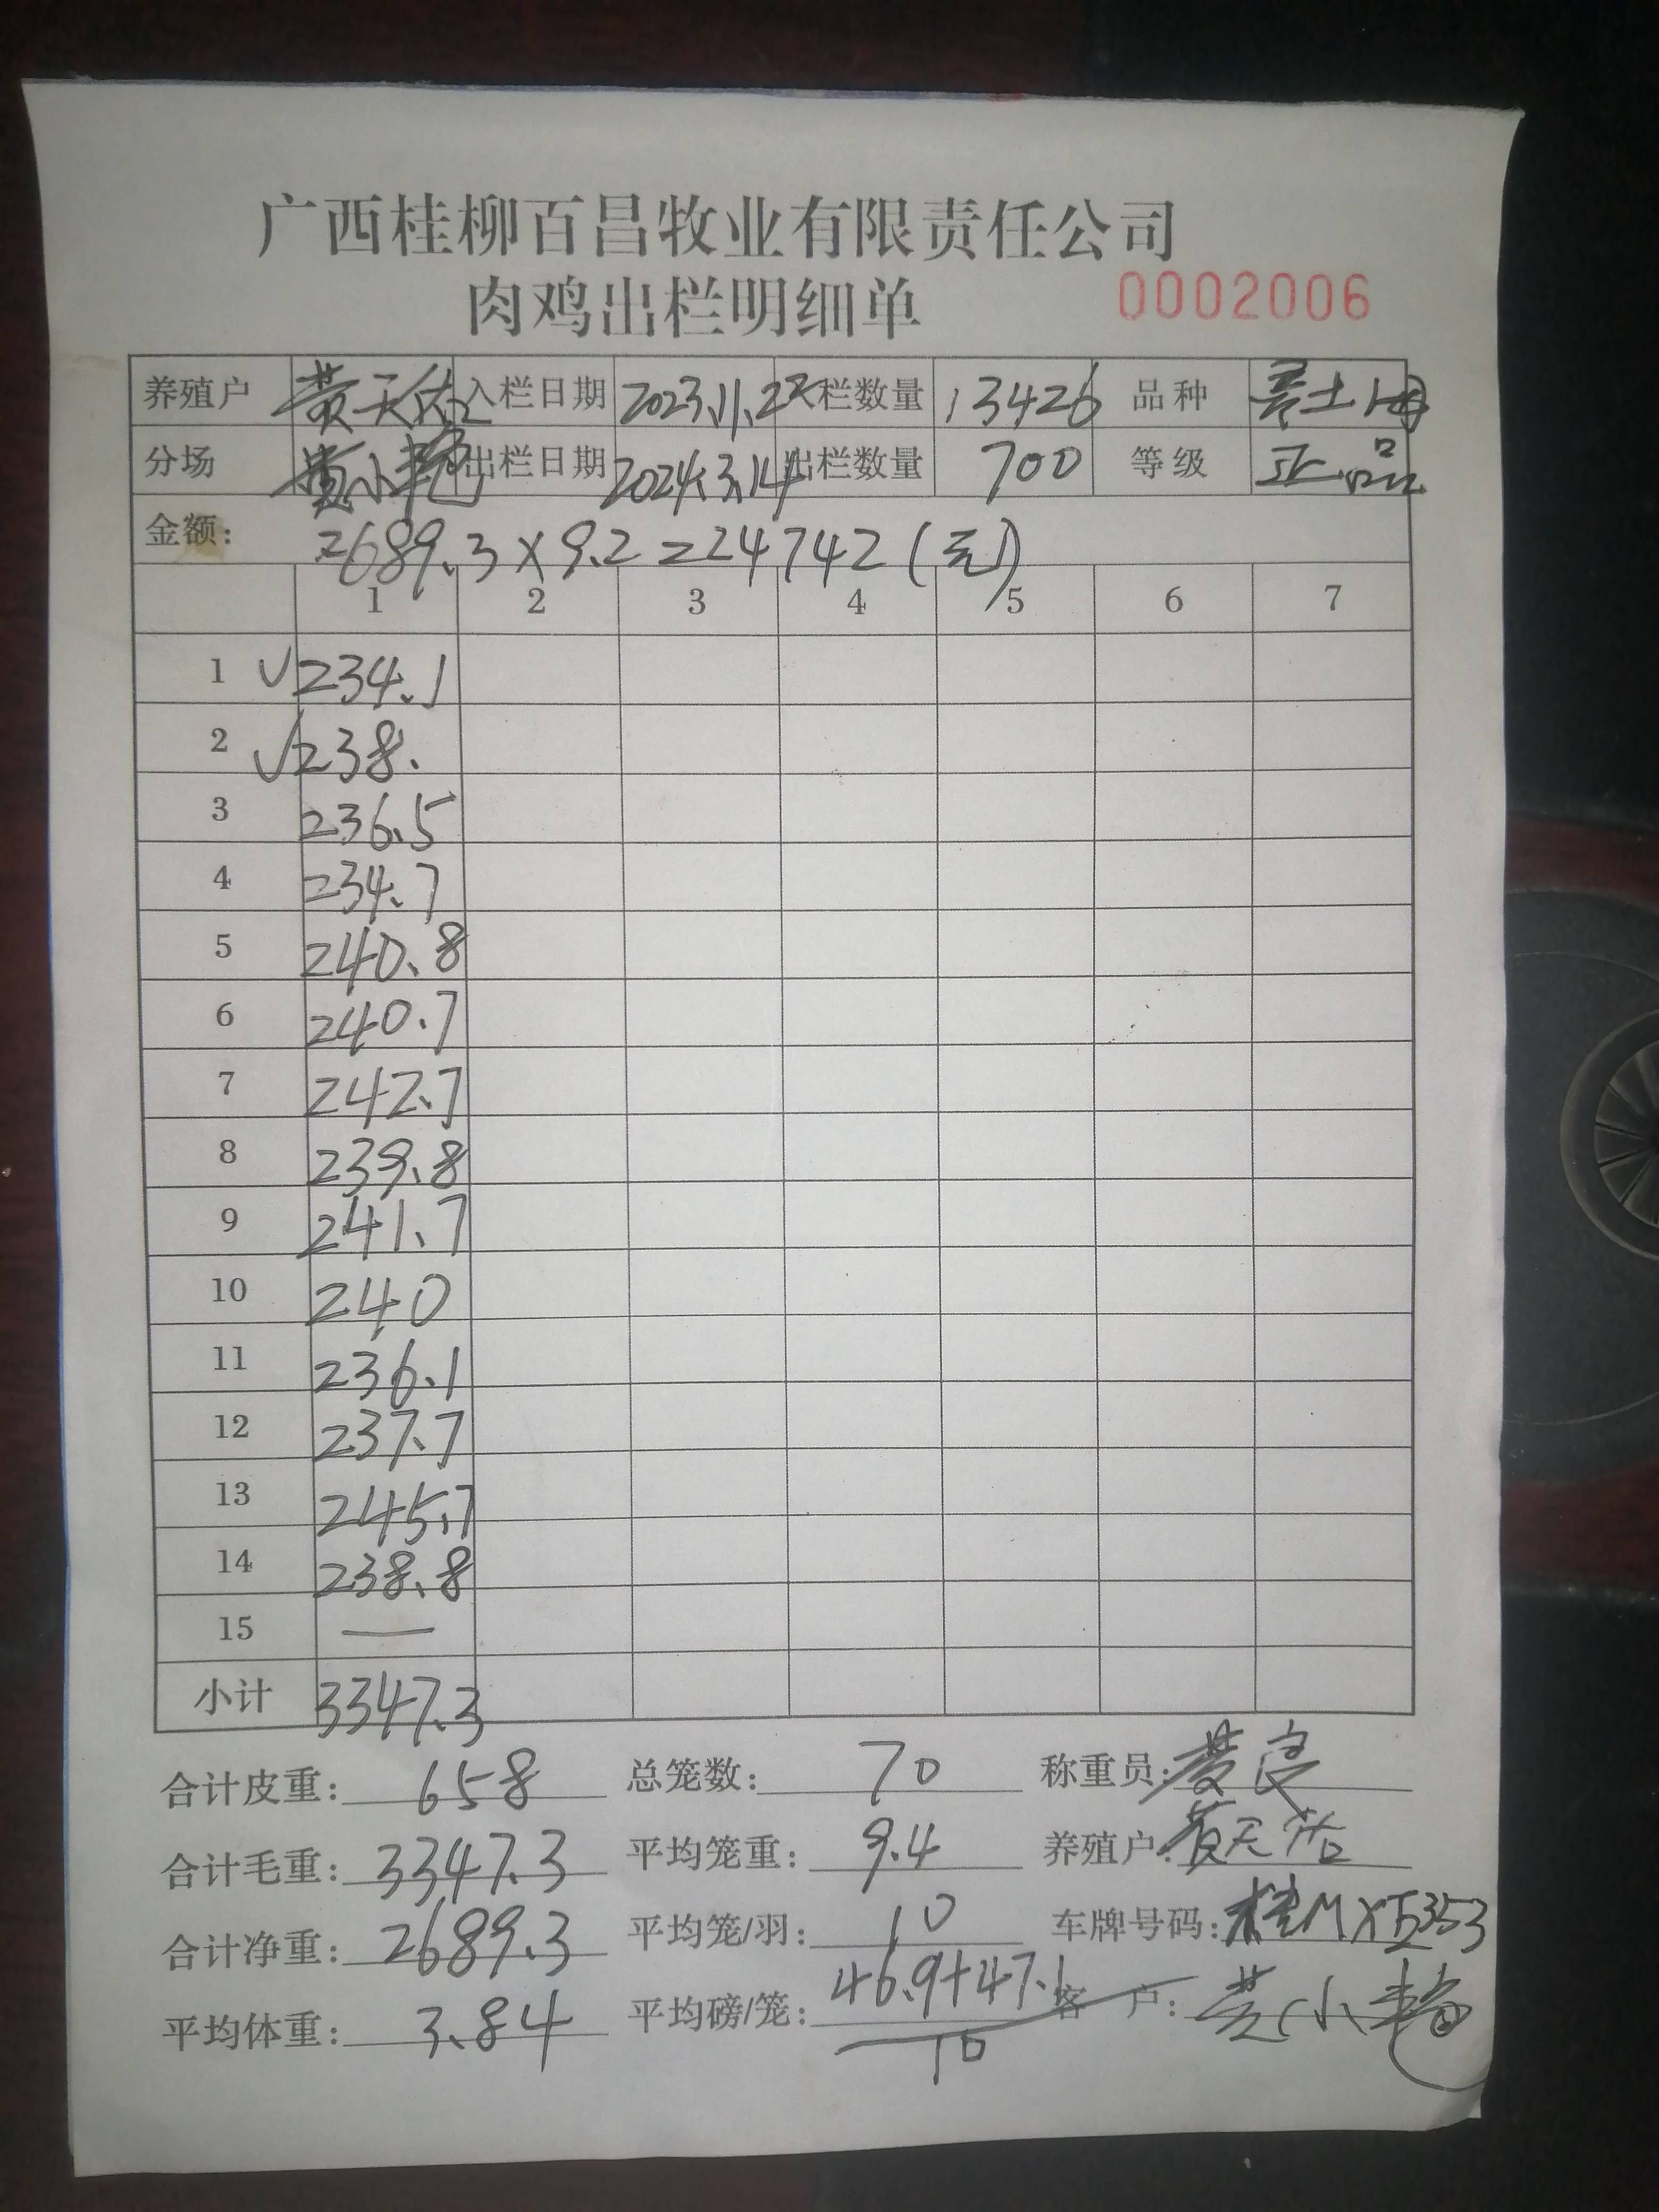 广西桂柳百昌牧业有限责任公司
肉鸡出栏明细单 0002006
养殖户 黄天佑 入栏日期 2023.11.22 入栏数量 13426 品种 土
分场 黄小艳 出栏日期 2024.3.14 出栏数量 700 等级 正品
金额: 2689.3×9.2=24742(元)
1 2 3 4 5 6 7
1 √234.1
2 √238.
3 236.5
4 234.7
5 240.8
6 240.7
7 242.7
8 239.8
9 241.7
10 240
11 236.1
12 237.7
13 245.7
14 238.8
15 —
小计 3347.3
合计皮重: 658 总笼数: 70 称重员: 黄良
合计毛重: 3347.3 平均笼重: 9.4 养殖户: 黄天佑
合计净重: 2689.3 平均笼/羽: 10 车牌号码: 桂MX5353
平均体重: 3.84 平均磅/笼: 46.9+47.1 客 户: 黄小艳
10